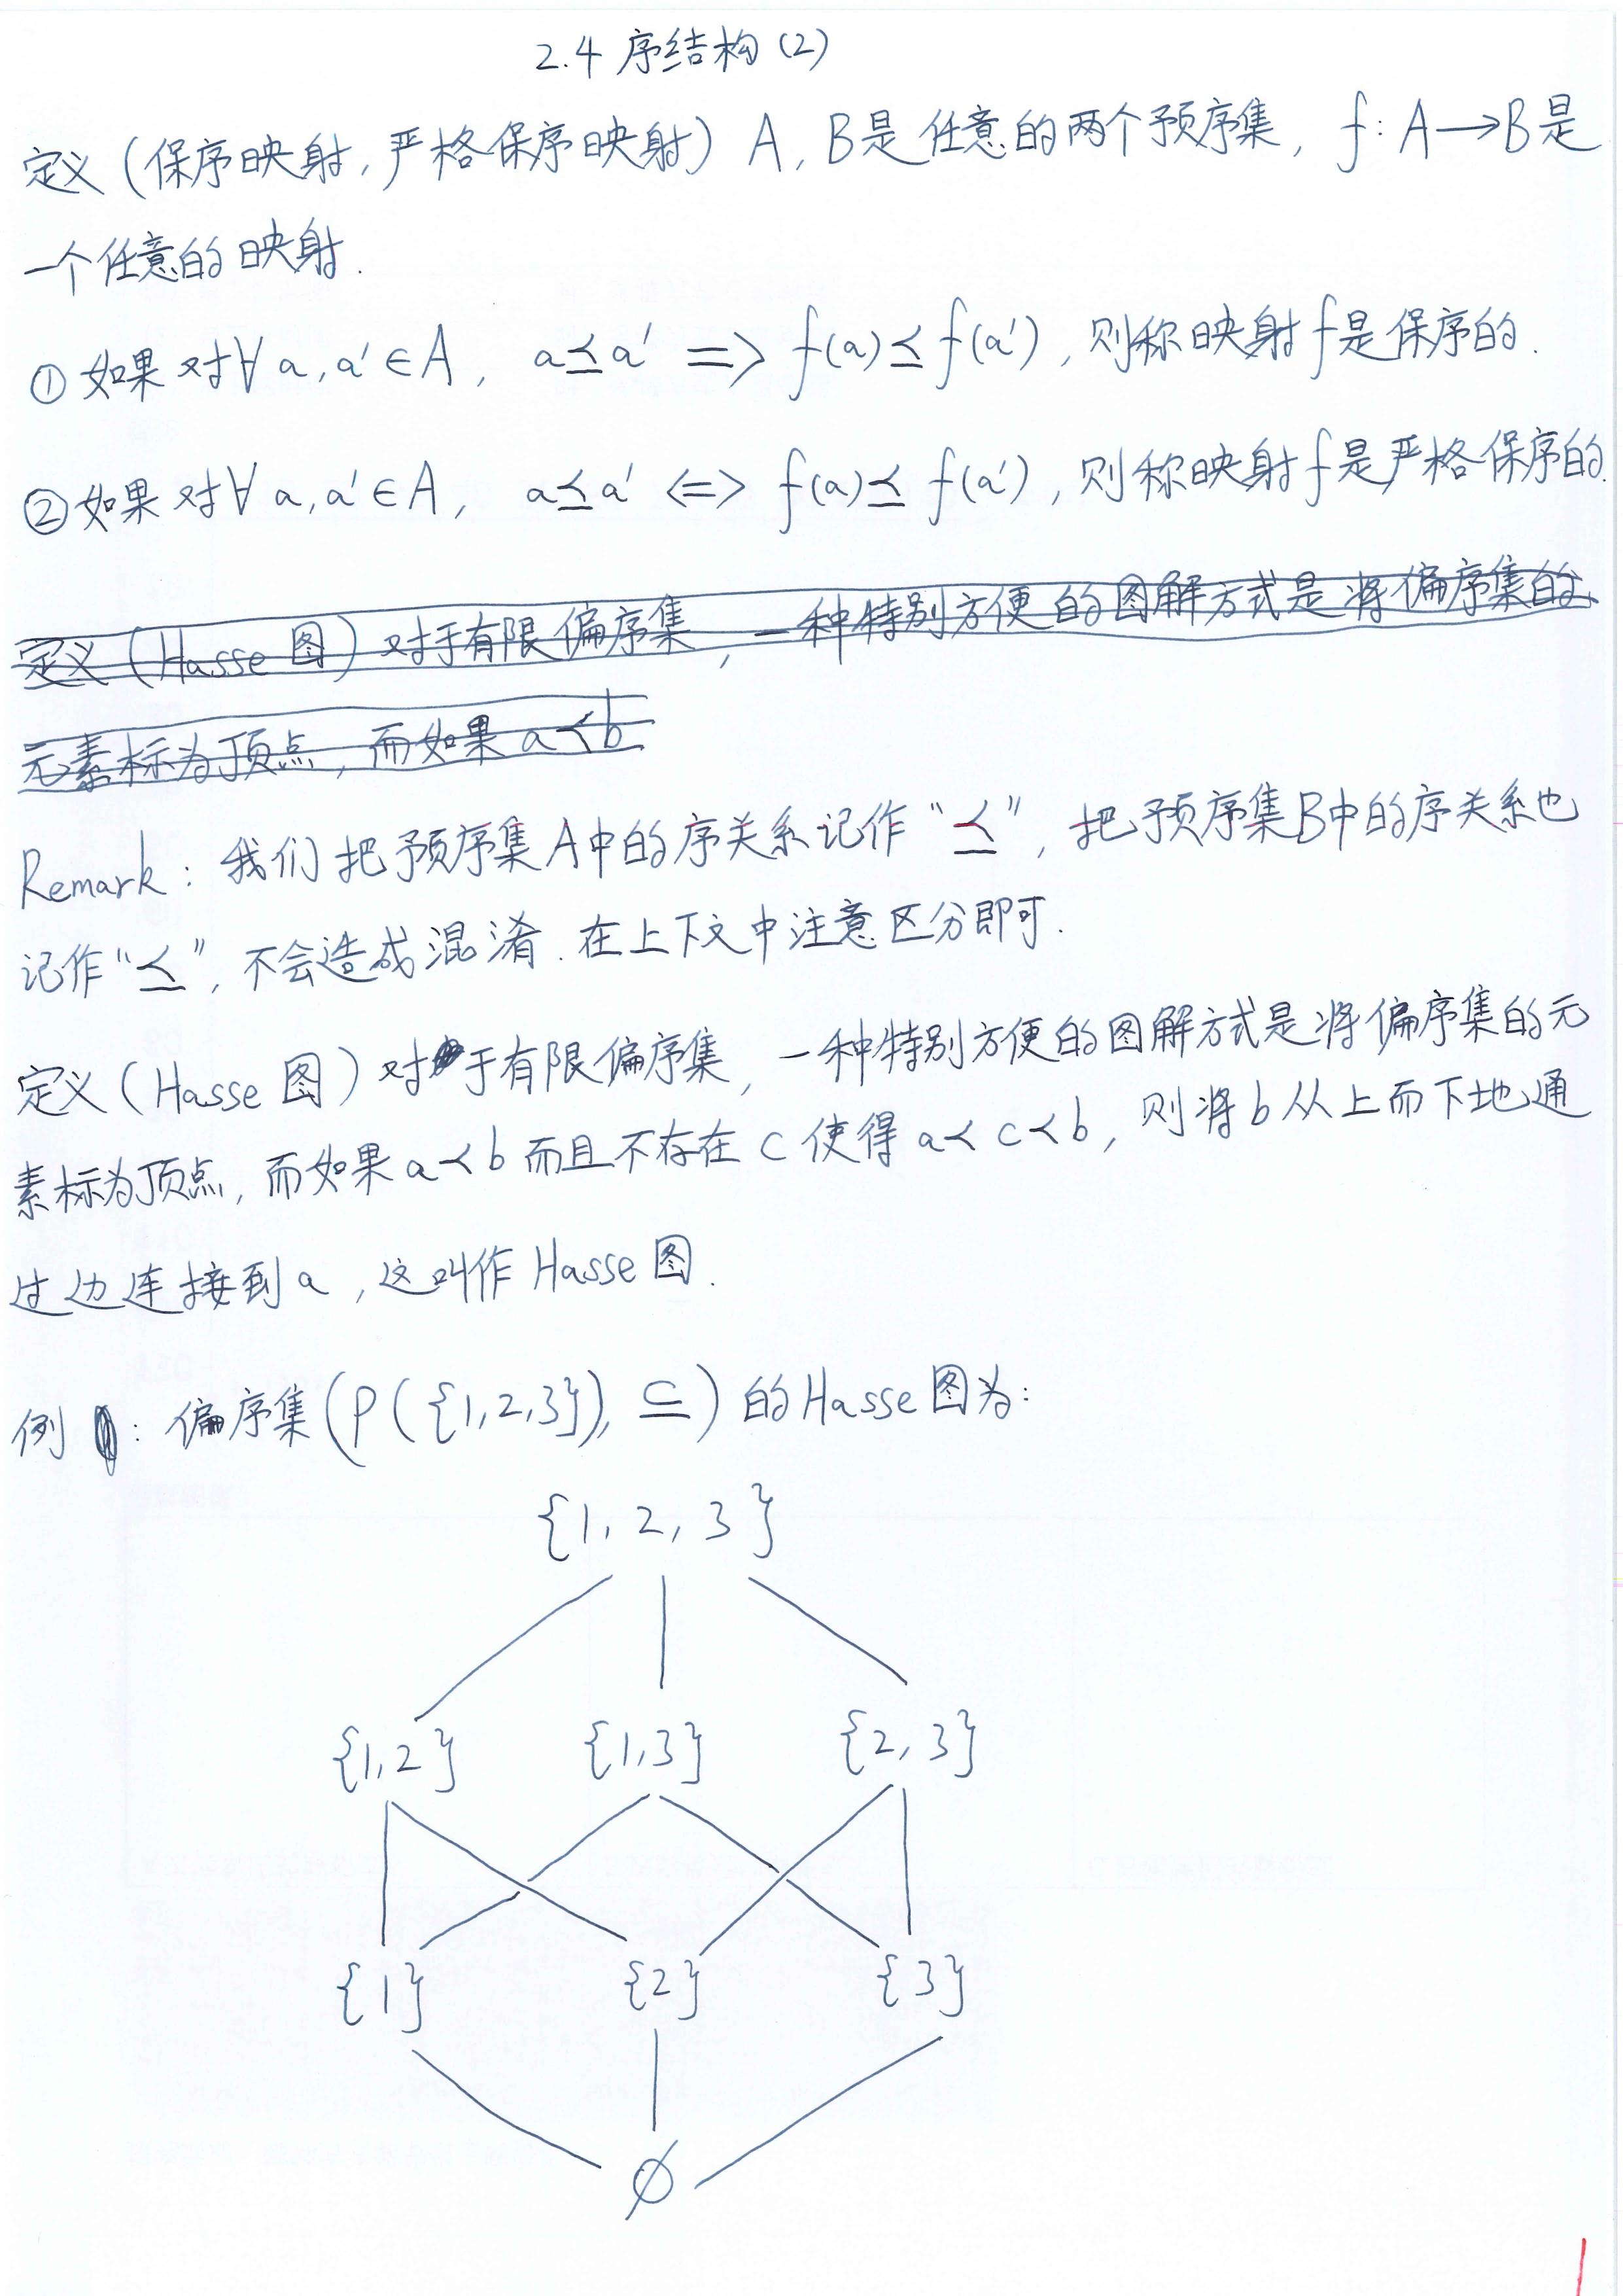 2.4 序结构 (2)
定义 (保序映射, 严格保序映射) A, B是任意的两个预序集, f: A→B是
一个任意的映射.
① 如果对∀ a, a′ ∈ A, a ⪯ a′ => f(a) ⪯ f(a′), 则称映射f是保序的.
② 如果对∀ a, a′ ∈ A, a ⪯ a′ <=> f(a) ⪯ f(a′), 则称映射f是严格保序的.
定义 (Hasse 图) 对于有限偏序集, 一种特别方便的图解方式是将偏序集的
元素标为顶点, 而如果 a ≺ b
Remark: 我们把预序集A中的序关系记作 “⪯”, 把预序集B中的序关系也
记作“⪯”, 不会造成混淆. 在上下文中注意区分即可.
定义 (Hasse 图) 对于有限偏序集, 一种特别方便的图解方式是将偏序集的元
素标为顶点, 而如果 a ≺ b 而且不存在 c 使得 a ≺ c ≺ b, 则将 b 从上而下地通
过边连接到 a, 这叫作 Hasse 图.
例 : 偏序集 (P({1,2,3}), ⊆) 的 Hasse 图为:
{1, 2, 3}
{1,2} {1,3} {2,3}
{1} {2} {3}
∅